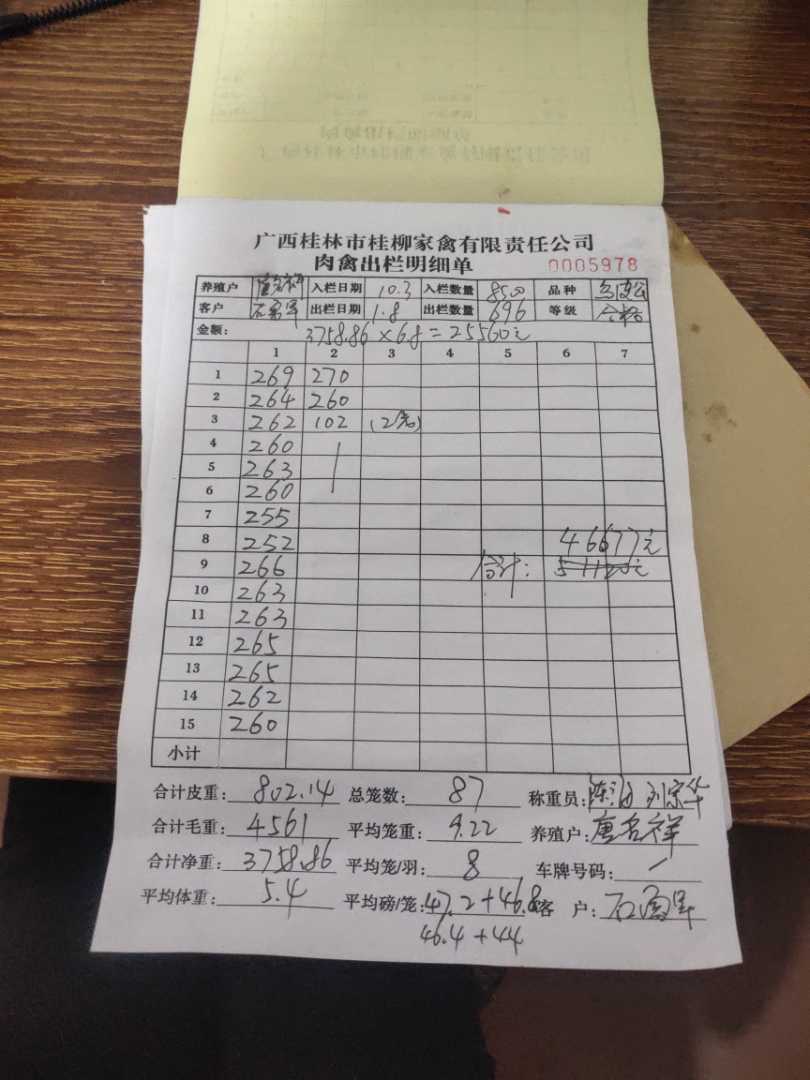 广西桂林市桂柳家禽有限责任公司
肉禽出栏明细单 0005978
养殖户 唐名祥 入栏日期 10.3 入栏数量 8500 品种
客户 出栏日期 1.8 出栏数量 696 等级 合格
金额: 3758.86×6.8=25560元
1 2 3 4 5 6 7
1 269 270
2 264 260
3 262 102 (2笼)
4 260
5 263
6 260
7 255
8 252 46677元
9 266 合计:
10 263
11 263
12 265
13 265
14 262
15 260
小计
合计皮重: 802.14 总笼数: 87 称重员: 刘宗华
合计毛重: 4561 平均笼重: 9.22 养殖户: 唐名祥
合计净重: 3758.86 平均笼/羽: 8 车牌号码: /
平均体重: 5.4 平均磅/笼: 47.2+46.8 客户:
46.4+44